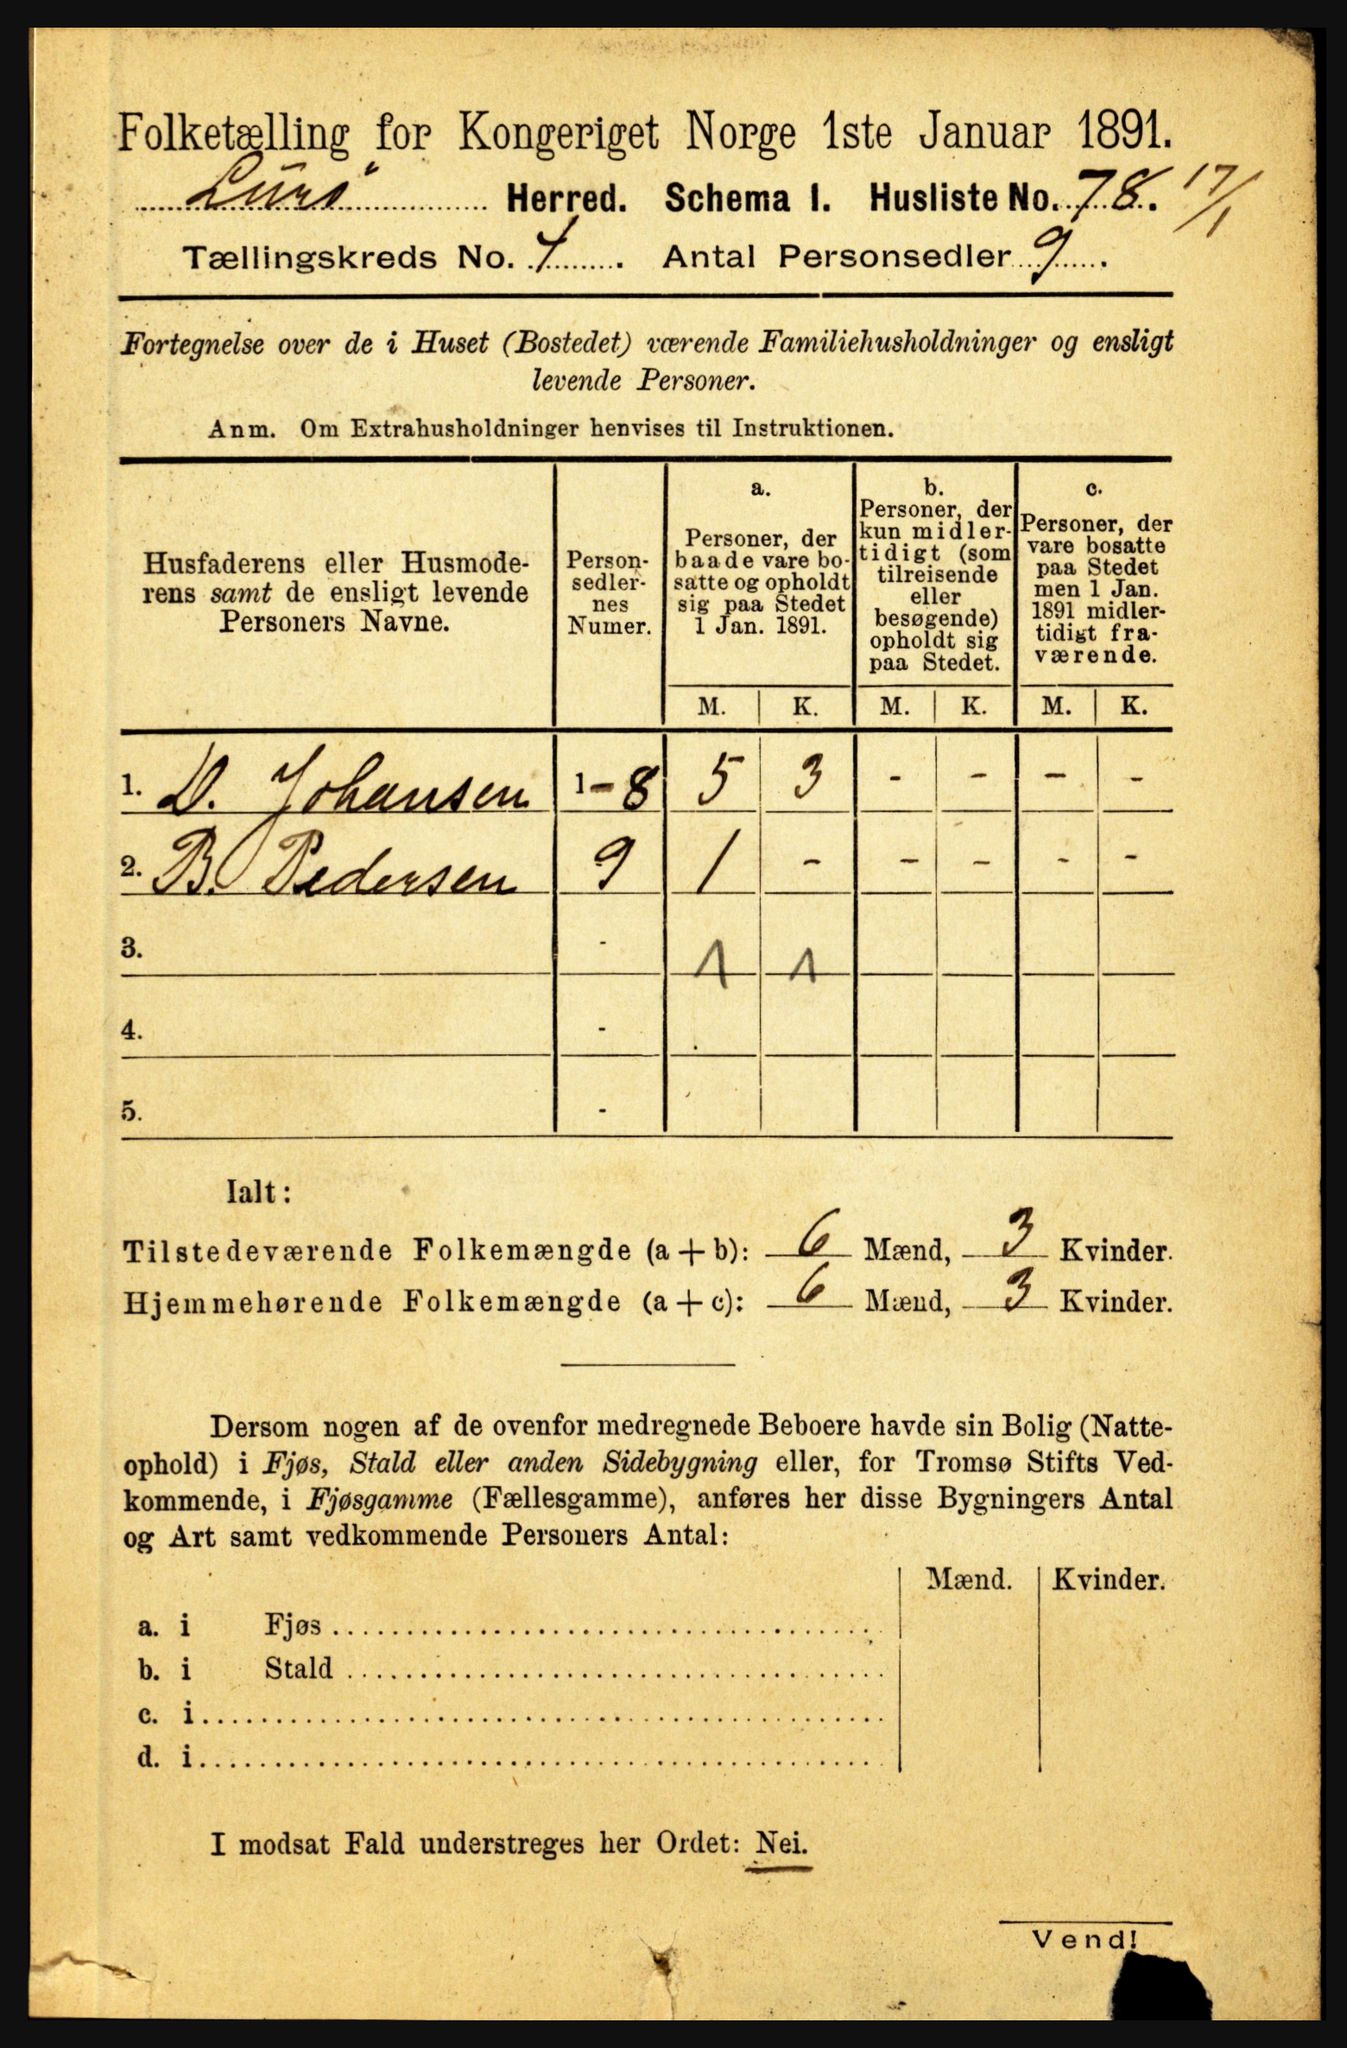 Folketælling for Kongeriget Norge 1ste Januar 1891.
Lurø Herred. Schema I. Husliste No. 78. 17/1
Tællingskreds No. 4. Antal Personsedler 9.
Fortegnelse over de i Huset (Bostedet) værende Familiehusholdninger og ensligt
levende Personer.
Anm. Om Extrahusholdninger henvises til Instruktionen.
Husfaderens eller Husmode-
rens samt de ensligt levende
Personers Navne.
Person-
sedler-
nes
Numer.
a.
Personer, der
baade vare bo-
satte og opholdt
sig paa Stedet
1 Jan. 1891.
b.
Personer, der
kun midler-
tidigt (som
tilreisende
eller
besøgende)
opholdt sig
paa Stedet.
c.
Personer, der
vare bosatte
paa Stedet
men 1 Jan.
1891 midler-
tidigt fra-
værende.
M. K. M. K. M. K.
1. D. Johansen 1-8 5 3 - - - -
2. B. Pedersen 9 1 - - - - -
3. - 1 1
4. -
5. -
Ialt:
Tilstedeværende Folkemængde (a + b): 6 Mænd, 3 Kvinder.
Hjemmehørende Folkemængde (a + c): 6 Mænd, 3 Kvinder.
Dersom nogen af de ovenfor medregnede Beboere havde sin Bolig (Natte-
ophold) i Fjøs, Stald eller anden Sidebygning eller, for Tromsø Stifts Ved-
kommende, i Fjøsgamme (Fællesgamme), anføres her disse Bygningers Antal
og Art samt vedkommende Personers Antal:
Mænd. Kvinder.
a. i Fjøs
b. i Stald
c. i
d. i
I modsat Fald understreges her Ordet: Nei.
Vend!